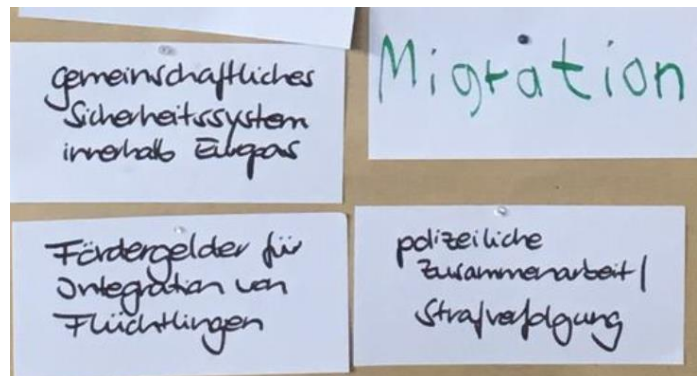 gemeinschaftliches
Sicherheitssystem
innerhalb Europas
Migration
Fördergelder für
Integration von
Flüchtlingen
polizeiliche
Zusammenarbeit/
Strafverfolgung